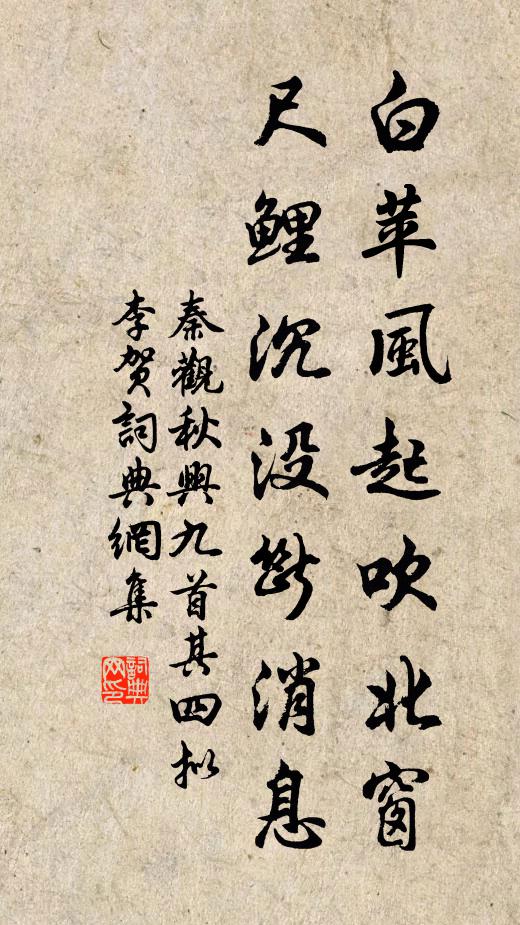 白苹風起吹北窗
尺鲤沉没斷消息
秦觀秋興九首其四拟
李贺詞典網集
詞典网印